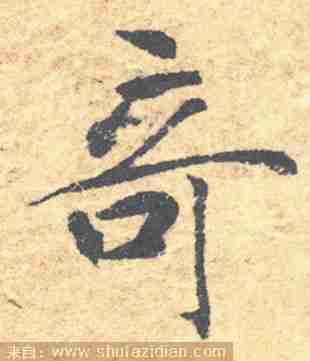 竒
来自：www.shufazidian.com